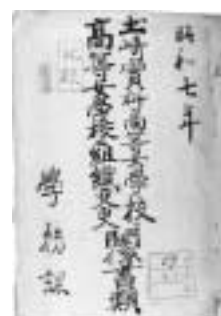 昭和七年
土崎實科高等女學校
高等女學校組織変更関係書類
學務課